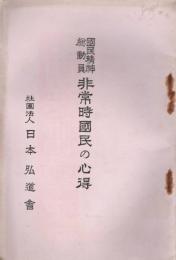 國民精神
總動員
非常時國民の心得
社團法人
日本弘道會